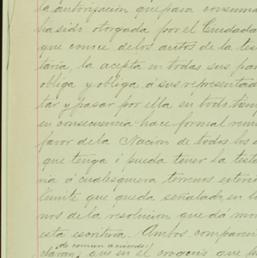 la autorización que para consuma
ha sido otorgada por el Ciudada
que conoce de los autos de la tes
taria, la acepta en todas sus par
obliga y obliga á sus representa
tar y pasar por ella en todo tiem
en consecuencia hace formal renun
favor de la Nacion de todos los
que tenga ó pueda tener la testa
ria á cualesquiera terrenos
límite que queda señalado en
nos de la resolución que dá mo
esta escritura. Ambos comparen
de comun acuerdo
claran que en el